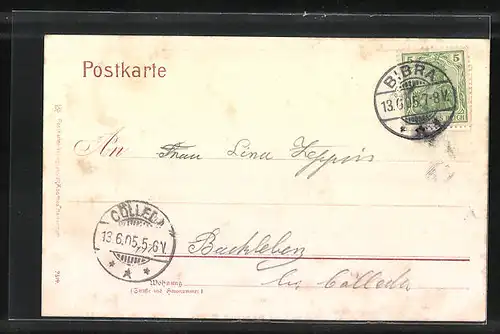 Postkarte
5
BIBRA
13.6.05.7-8V.
An Frau Lina
CÖLLEDA
13.6.05.5-6V.
Backleben
bei Cölleda
Wohnung
(Straße und Hausnummer)